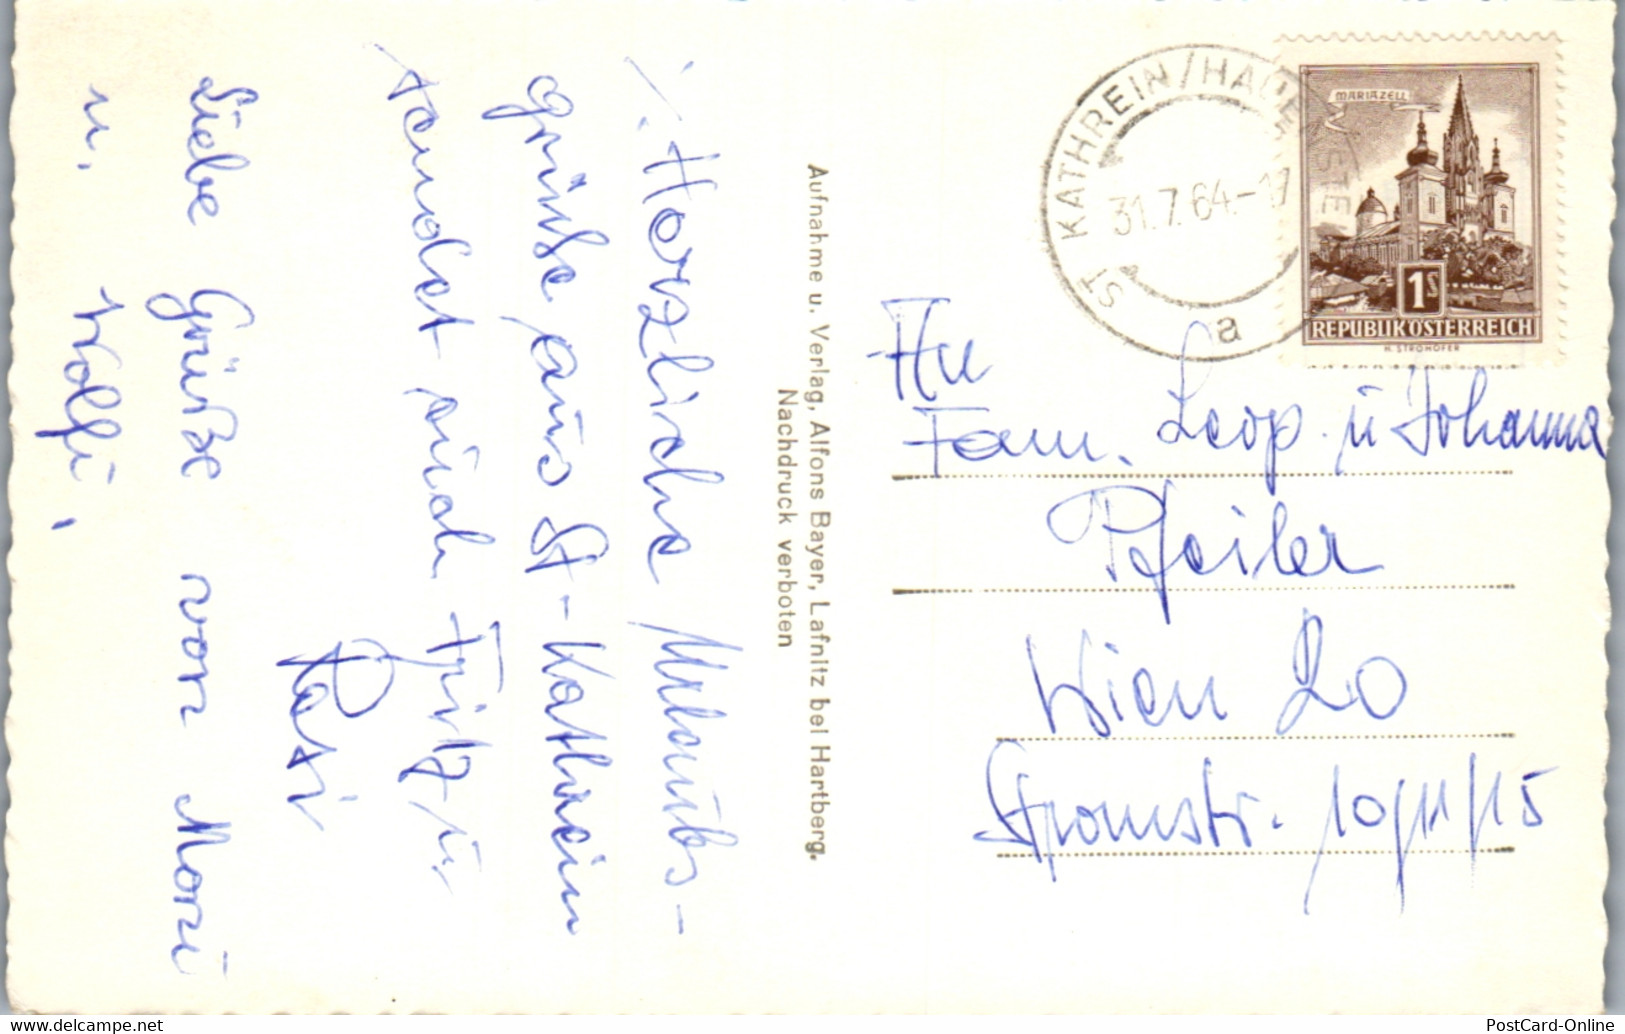 Herzliche Urlaubs-
grüße aus St-Kathrein
sendet euch Fritz u.
Resi
Liebe Grüße von Moni
u. Wolfi.
Aufnahme u. Verlag, Alfons Bayer, Lafnitz bei Hartberg.
Nachdruck verboten
ST KATHREIN/HAUENSTEIN
31.7.64-17
a
MARIAZELL
1S
REPUBLIK ÖSTERREICH
H. STROHOFER
An
Fam. Leop. u Johanna
Pfeiler
Wien 20
Stromstr. 10/11/15
PostCard-Online